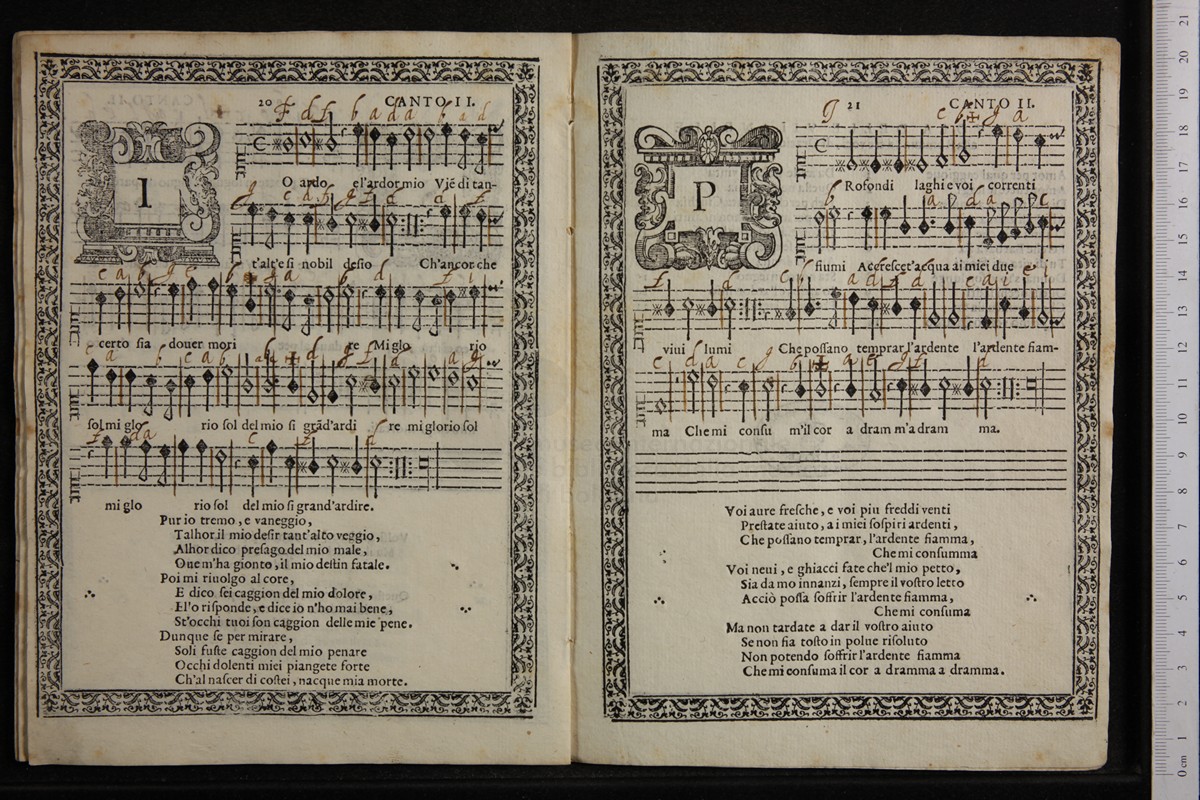 20 CANTO II.
I
O ardo el'ardor mio Viẽ di tan-
t'alt'e si nobil desio Ch'ancor che
certo sia douer mori re Mi glo rio
sol mi glo rio sol del mio si grãd'ardi re mi glorio sol
mi glo rio sol del mio si grand'ardire.
Pur io tremo, e vaneggio,
Talhor il mio desir tant'alto veggio,
Alhor dico presago del mio male,
Oue m'ha gionto, il mio destin fatale.
Poi mi riuolgo al core,
E dico sei caggion del mio dolore,
El'o risponde, e dice io n'ho mai bene,
St'occhi tuoi son caggion delle mie pene.
Dunque se per mirare,
Soli fuste caggion del mio penare
Occhi dolenti miei piangete forte
Ch'al nascer di costei, nacque mia morte.
21 CANTO II.
P
Rofondi laghi e voi correnti
fiumi Accrescet'acqua ai miei due
viui lumi Che possano temprar l'ardente l'ardente fiam-
ma Che mi consu m'il cor a dram m'a dram ma.
Voi aure fresche, e voi piu freddi venti
Prestate aiuto, a i miei sospiri ardenti,
Che possano temprar, l'ardente fiamma,
Che mi consumma
Voi neui, e ghiacci fate che'l mio petto,
Sia da mo innanzi, sempre il vostro letto
Acciò possa soffrir l'ardente fiamma,
Che mi consuma
Ma non tardate a dar il vostro aiuto
Se non fia tosto in polue risoluto
Non potendo soffrir l'ardente fiamma
Che mi consuma il cor a dramma a dramma.
0 cm 1 2 3 4 5 6 7 8 9 10 11 12 13 14 15 16 17 18 19 20 21